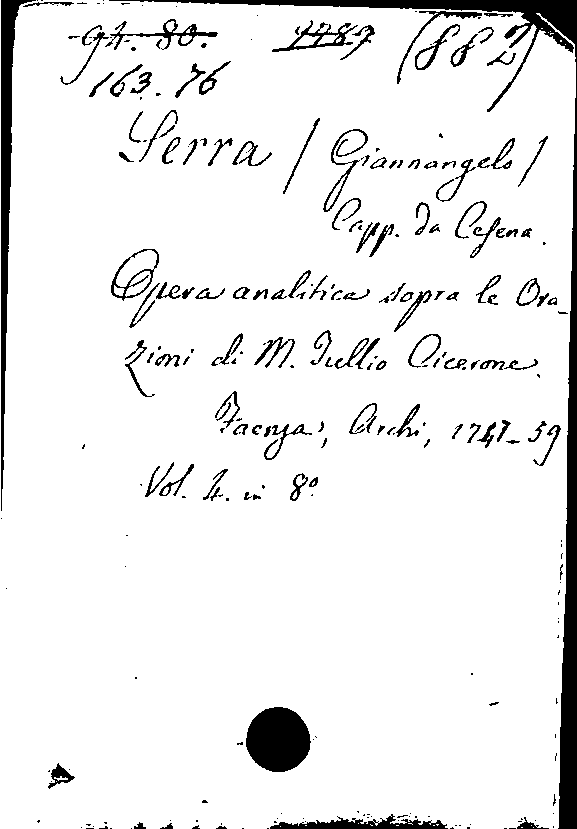 94. 80. 7787 (882)
163. 76
Serra / Giannangelo /
Capp. da Cesena.
Opera analitica sopra le Ora-
zioni di M. Tullio Cicerone.
Faenza, Archi, 1747-59
Vol. 4. in 8º